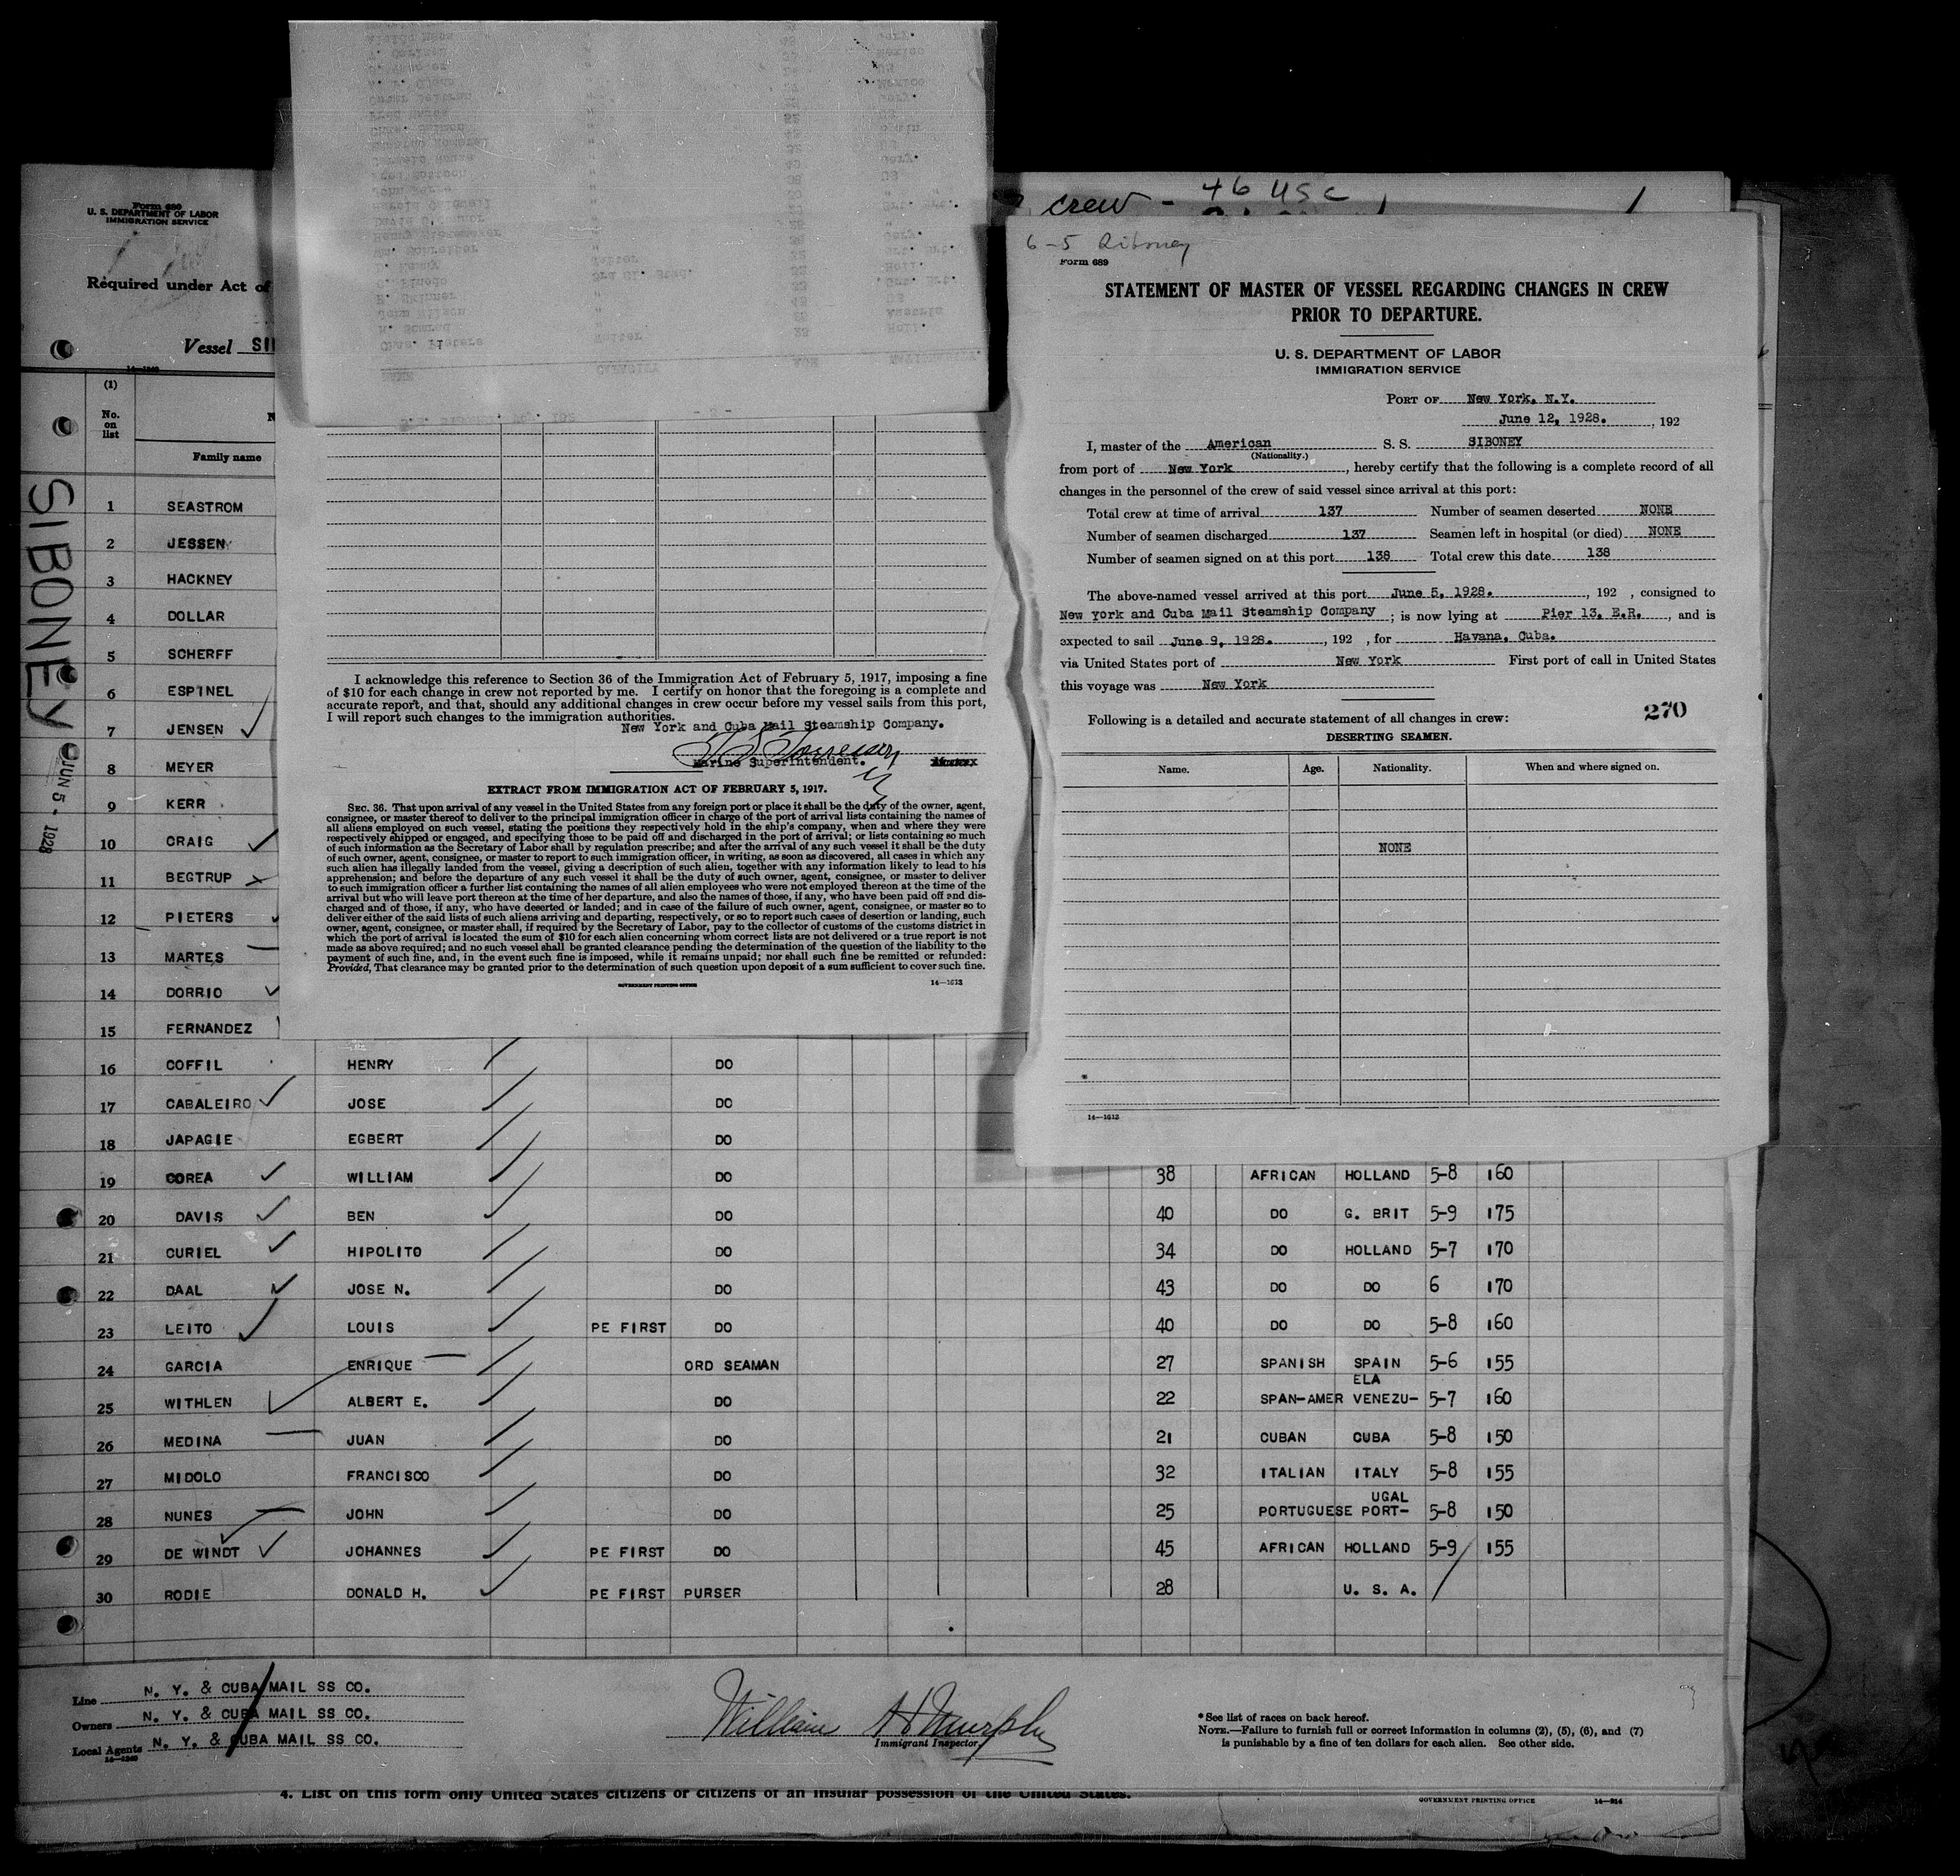 crew - 46 USC
Form 689
U. S. DEPARTMENT OF LABOR
IMMIGRATION SERVICE
Required under Act of
Vessel SI
(1)
No.
on
list
Family name
SIBONEY
JUN 5 - 1928
1 SEASTROM
2 JESSEN
3 HACKNEY
4 DOLLAR
5 SCHERFF
6 ESPINEL
7 JENSEN
8 MEYER
9 KERR
10 CRAIG
11 BEGTRUP
12 PIETERS
13 MARTES
14 DORRIO
15 FERNANDEZ
16 COFFIL HENRY DO
17 CABALEIRO JOSE DO
18 JAPAGIE EGBERT DO
19 COREA WILLIAM DO 38 AFRICAN HOLLAND 5-8 160
20 DAVIS BEN DO 40 DO G. BRIT 5-9 175
21 CURIEL HIPOLITO DO 34 DO HOLLAND 5-7 170
22 DAAL JOSE N. DO 43 DO DO 6 170
23 LEITO LOUIS PE FIRST DO 40 DO DO 5-8 160
24 GARCIA ENRIQUE ORD SEAMAN 27 SPANISH SPAIN 5-6 155
ELA
25 WITHLEN ALBERT E. DO 22 SPAN-AMER VENEZU- 5-7 160
26 MEDINA JUAN DO 21 CUBAN CUBA 5-8 150
27 MIDOLO FRANCISCO DO 32 ITALIAN ITALY 5-8 155
UGAL
28 NUNES JOHN DO 25 PORTUGUESE PORT- 5-8 150
29 DE WINDT JOHANNES PE FIRST DO 45 AFRICAN HOLLAND 5-9 155
30 RODIE DONALD H. PE FIRST PURSER 28 U. S. A.
Line N. Y. & CUBA MAIL SS CO.
Owners N. Y. & CUBA MAIL SS CO.
Local Agents N. Y. & CUBA MAIL SS CO.
14-1240
William H Murphy
Immigrant Inspector.
*See list of races on back hereof.
NOTE.—Failure to furnish full or correct information in columns (2), (5), (6), and (7)
is punishable by a fine of ten dollars for each alien. See other side.
4. List on this form only United States citizens or citizens of an insular possession of the United States.
GOVERNMENT PRINTING OFFICE
I acknowledge this reference to Section 36 of the Immigration Act of February 5, 1917, imposing a fine
of $10 for each change in crew not reported by me. I certify on honor that the foregoing is a complete and
accurate report, and that, should any additional changes in crew occur before my vessel sails from this port,
I will report such changes to the immigration authorities.
New York and Cuba Mail Steamship Company.
Marine Superintendent.
EXTRACT FROM IMMIGRATION ACT OF FEBRUARY 5, 1917.
SEC. 36. That upon arrival of any vessel in the United States from any foreign port or place it shall be the duty of the owner, agent,
consignee, or master thereof to deliver to the principal immigration officer in charge of the port of arrival lists containing the names of
all aliens employed on such vessel, stating the positions they respectively hold in the ship's company, when and where they were
respectively shipped or engaged, and specifying those to be paid off and discharged in the port of arrival; or lists containing so much
of such information as the Secretary of Labor shall by regulation prescribe; and after the arrival of any such vessel it shall be the duty
of such owner, agent, consignee, or master to report to such immigration officer, in writing, as soon as discovered, all cases in which any
such alien has illegally landed from the vessel, giving a description of such alien, together with any information likely to lead to his
apprehension; and before the departure of any such vessel it shall be the duty of such owner, agent, consignee, or master to deliver
to such immigration officer a further list containing the names of all alien employees who were not employed thereon at the time of the
arrival but who will leave port thereon at the time of her departure, and also the names of those, if any, who have been paid off and dis-
charged and of those, if any, who have deserted or landed; and in case of the failure of such owner, agent, consignee, or master so to
deliver either of the said lists of such aliens arriving and departing, respectively, or so to report such cases of desertion or landing, such
owner, agent, consignee, or master shall, if required by the Secretary of Labor, pay to the collector of customs of the customs district in
which the port of arrival is located the sum of $10 for each alien concerning whom correct lists are not delivered or a true report is not
made as above required; and no such vessel shall be granted clearance pending the determination of the question of the liability to the
payment of such fine, and, in the event such fine is imposed, while it remains unpaid; nor shall such fine be remitted or refunded:
Provided, That clearance may be granted prior to the determination of such question upon deposit of a sum sufficient to cover such fine.
GOVERNMENT PRINTING OFFICE 14-1613
6-5 Siboney
Form 689
STATEMENT OF MASTER OF VESSEL REGARDING CHANGES IN CREW
PRIOR TO DEPARTURE.
U. S. DEPARTMENT OF LABOR
IMMIGRATION SERVICE
PORT OF New York, N.Y.
June 12, 1928. , 192
I, master of the American S. S. SIBONEY
(Nationality.)
from port of New York , hereby certify that the following is a complete record of all
changes in the personnel of the crew of said vessel since arrival at this port:
Total crew at time of arrival 137 Number of seamen deserted NONE
Number of seamen discharged 137 Seamen left in hospital (or died) NONE
Number of seamen signed on at this port 138 Total crew this date 138
The above-named vessel arrived at this port June 5, 1928. , 192 , consigned to
New York and Cuba Mail Steamship Company ; is now lying at Pier 13, E.R. , and is
expected to sail June 9, 1928. , 192 , for Havana, Cuba.
via United States port of New York First port of call in United States
this voyage was New York
270
Following is a detailed and accurate statement of all changes in crew:
DESERTING SEAMEN.
Name. Age. Nationality. When and where signed on.
NONE
14-1613